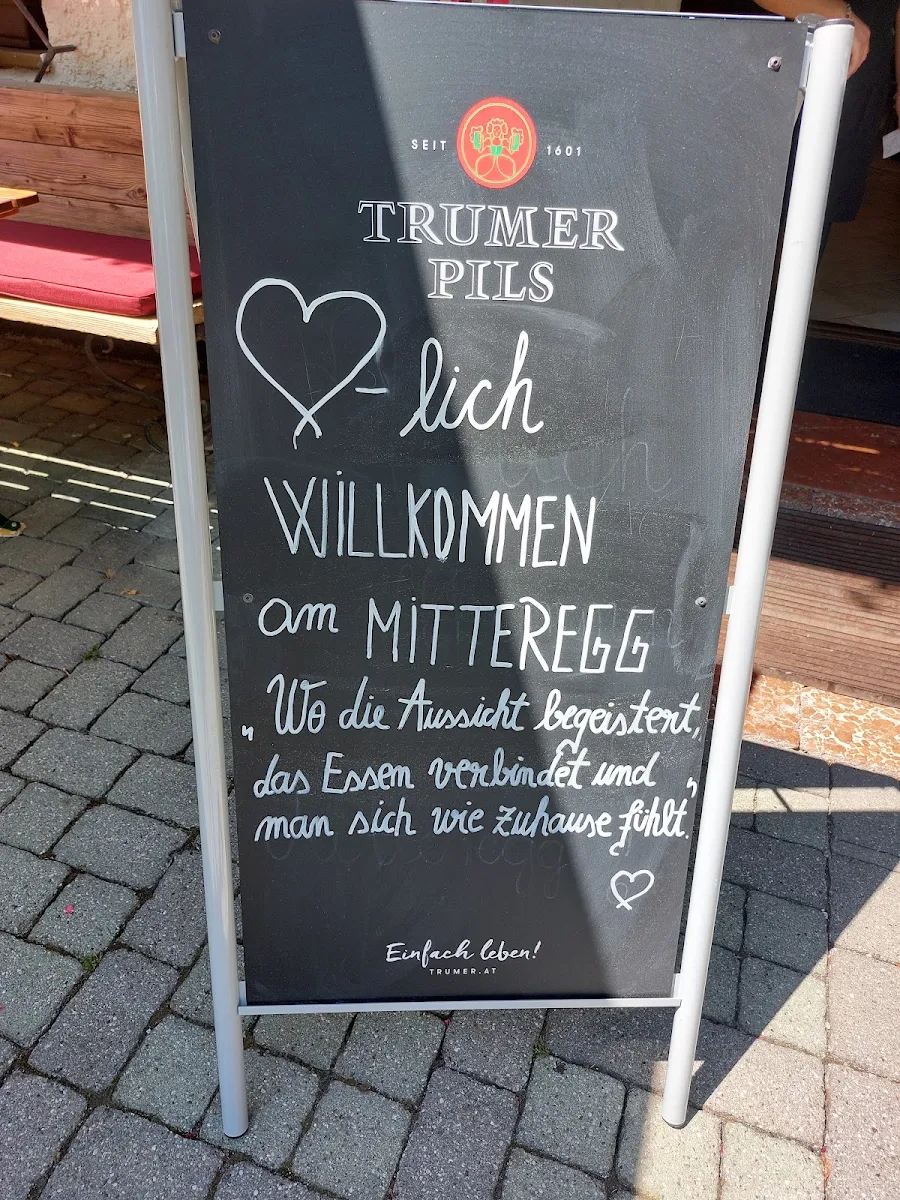 SEIT 1601
TRUMER
PILS
♡-lich
WILLKOMMEN
am MITTEREGG
„Wo die Aussicht begeistert,
das Essen verbindet und
man sich wie zuhause fühlt.”
♡
Einfach leben!
TRUMER.AT